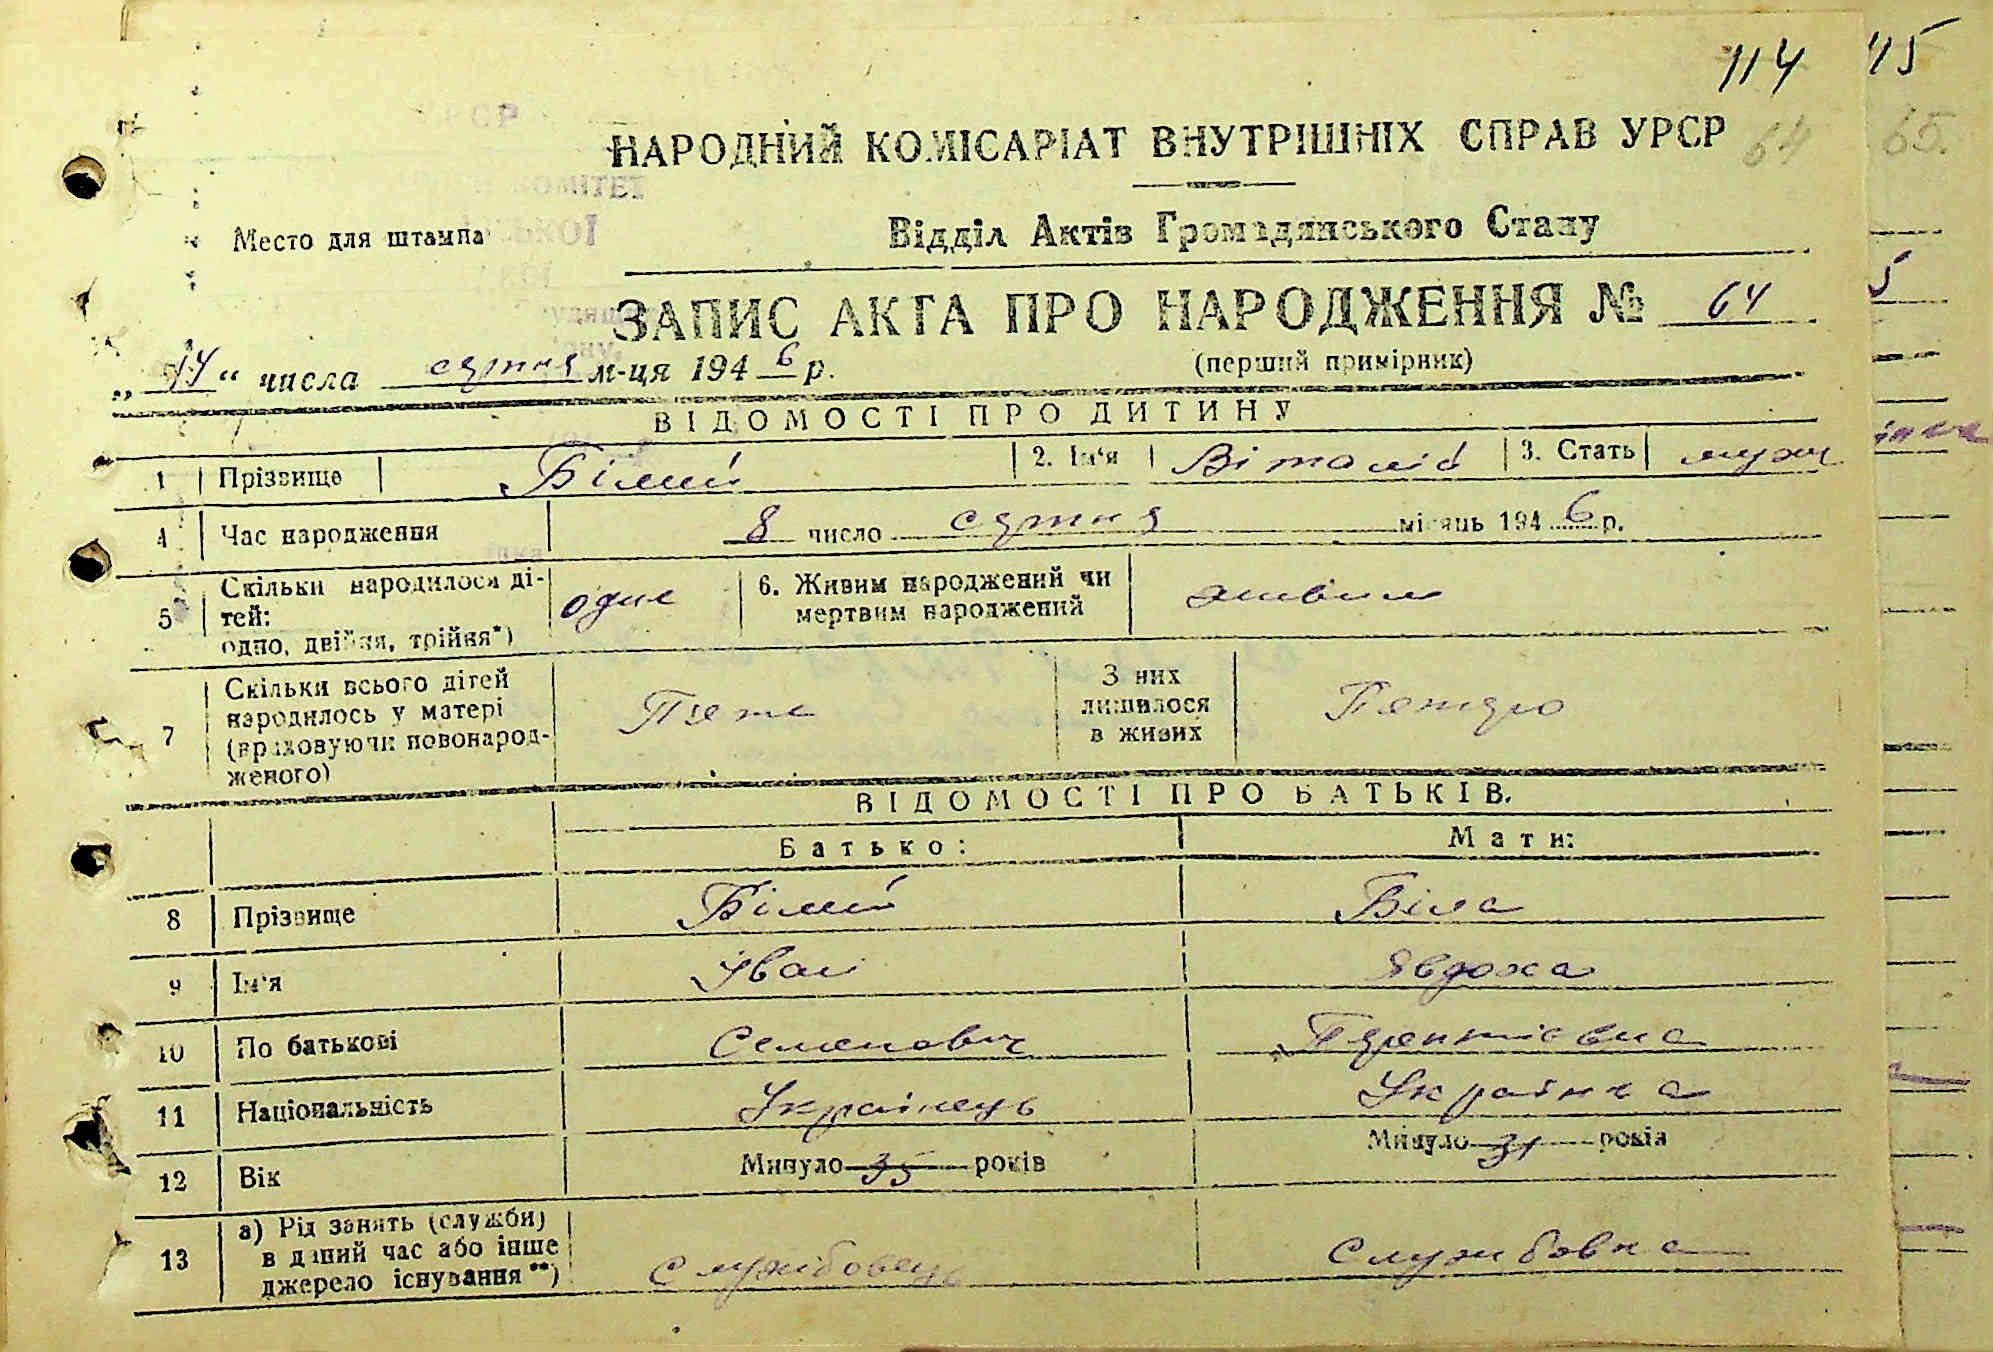 114
45
НАРОДНИЙ КОМІСАРІАТ ВНУТРІШНІХ СПРАВ УРСР 64
65.
Место для штампа
Відділ Актів Громадянського Стану
ЗАПИС АКТА ПРО НАРОДЖЕННЯ № 64
„ 14 “ числа сутня м-ця 1946 р.
(перший примірник)
ВІДОМОСТІ ПРО ДИТИНУ
1 Прізвище Білий 2. Ім'я Віталій 3. Стать муж
4 Час народження 8 число сутня місяць 1946 р.
5 Скільки народилося ді-
тей:
одно, двійня, трійня*) одне
6. Живим народжений чи
мертвим народжений живим
7 Скільки всього дітей
народилось у матері
(враховуючи новонарод-
женого)
З них
лишилося
в живих
ВІДОМОСТІ ПРО БАТЬКІВ.
Батько: Мати:
8 Прізвище Білий Біла
9 Ім'я Іван Явдоха
10 По батькові Семенович
11 Національність Українець Українка
12 Вік Минуло 35 років Минуло 31 років
13 а) Рід занять (служби)
в даний час або інше
джерело існування**) Службовець Службовка